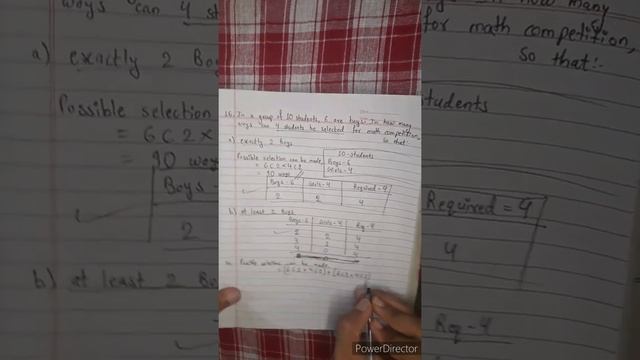 16. In a group of 10 students, 6 are boys. In how many
ways can 4 students be selected for math competition,
so that:-
a) exactly 2 Boys
10-students
Boys-6
Girls-4
Possible selection can be made,
= 6C2×4C2
= 90 ways
Boys-6 Girls-4 Required=4
2 2 4
b) at least 2 Boys
Boys-6 Girls-4 Req-4
2 2 4
3 1 4
4 0 4
Possible selection can be made,
PowerDirector